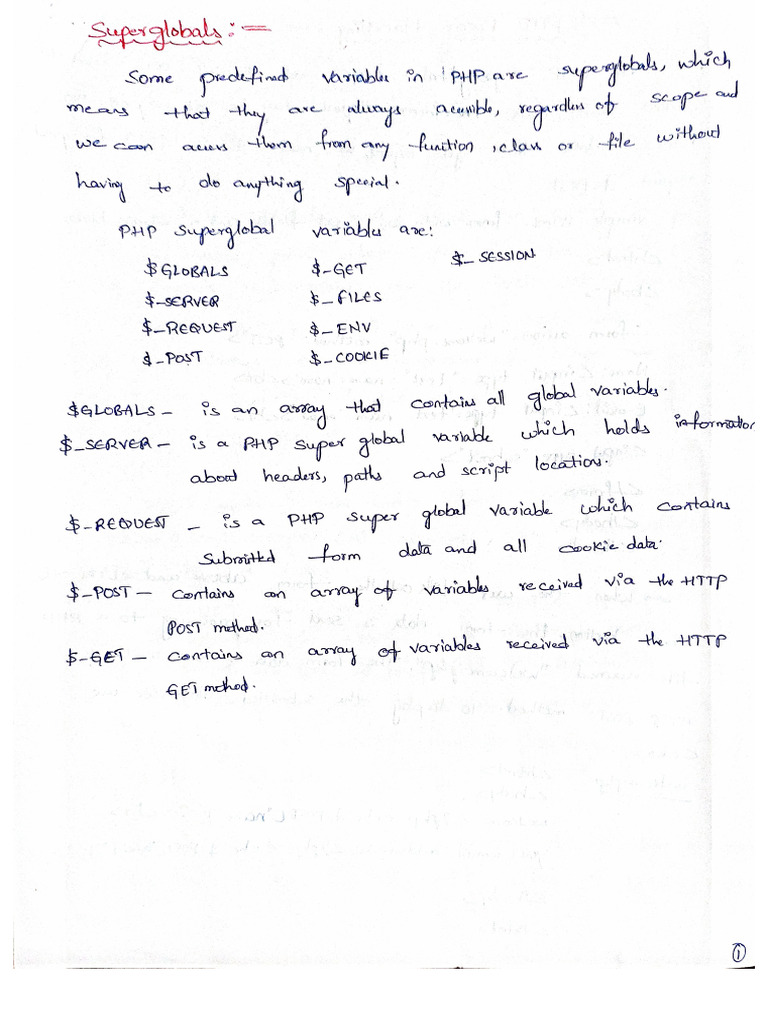 Superglobals:-
Some predefined variables in PHP are superglobals, which
means that they are always accessible, regardless of scope and
we can access them from any function, class or file without
having to do anything special.
PHP superglobal variables are:
$GLOBALS $-GET $_ SESSION
$-SERVER $_ FILES
$-REQUEST $_ ENV
$_POST $_COOKIE
$GLOBALS - is an array that contains all global variables.
$_SERVER - is a PHP super global variable which holds information
about headers, paths and script location.
$-REQUEST - is a PHP super global variable which contains
submitted form data and all cookie data.
$_POST - contains an array of variables received via the HTTP
POST method.
$-GET - contains an array of variables received via the HTTP
GET method.
1